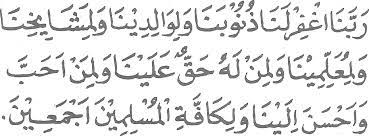 رَبَّنَا اغْفِرْلَنَا ذُنُوْبَنَا وَلِوَالِدِيْنَا وَلِمَشَايِخِنَا
وَلِمُعَلِّمِيْنَا وَلِمَنْ لَهُ حَقٌّ عَلَيْنَا وَلِمَنْ اَحَبَّ
وَاَحْسَنَ اِلَيْنَا وَلِكَافَّةِ الْمُسْلِمِيْنَ اَجْمَعِيْنَ.